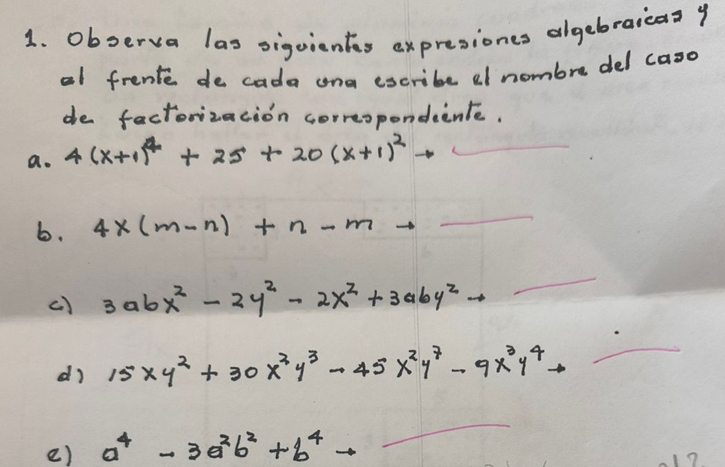 1. Observa las siguientes expresiones algebraicas y
al frente de cada una escribe el nombre del caso
de factorización correspondiente.
a. 4(x+1)⁴ + 25 + 20(x+1)² →
b. 4x(m-n) + n - m →
c) 3abx² - 2y² - 2x² + 3aby² →
d) 15xy² + 30x²y³ - 45x²y⁷ - 9x³y⁴ →
e) a⁴ - 3a²b² + b⁴ →